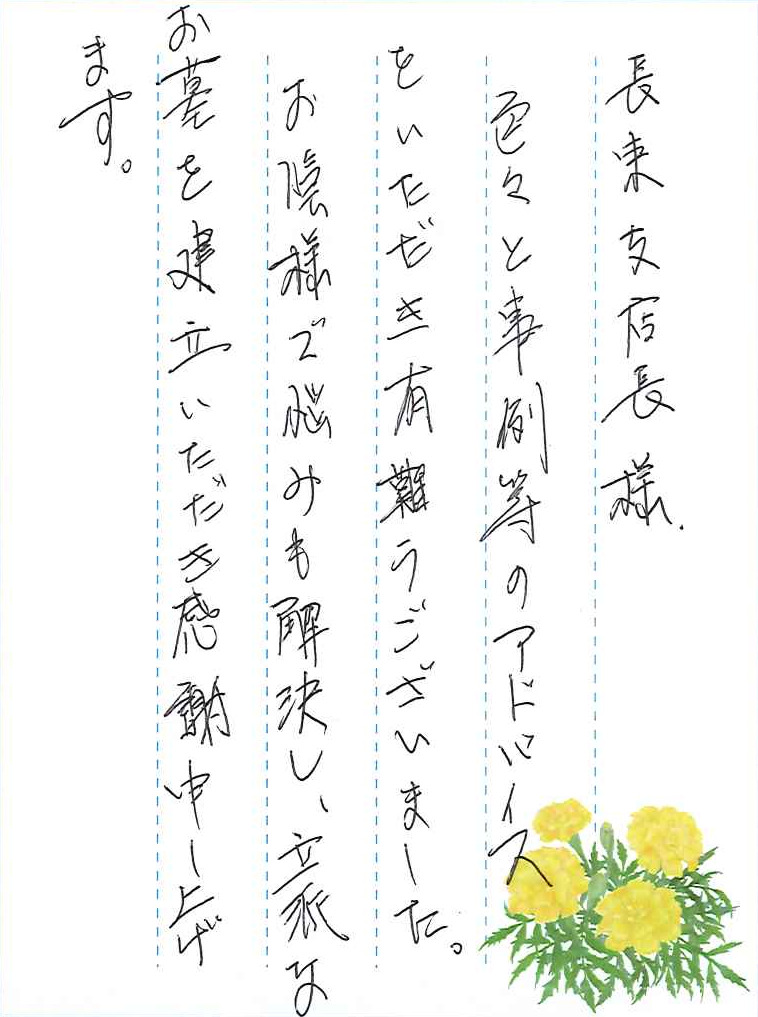 長束支店長様.
色々と事例等のアドバイス
をいただき有難うございました。
お陰様で悩みも解決し、立派な
お墓を建立いただき感謝申し上げ
ます。